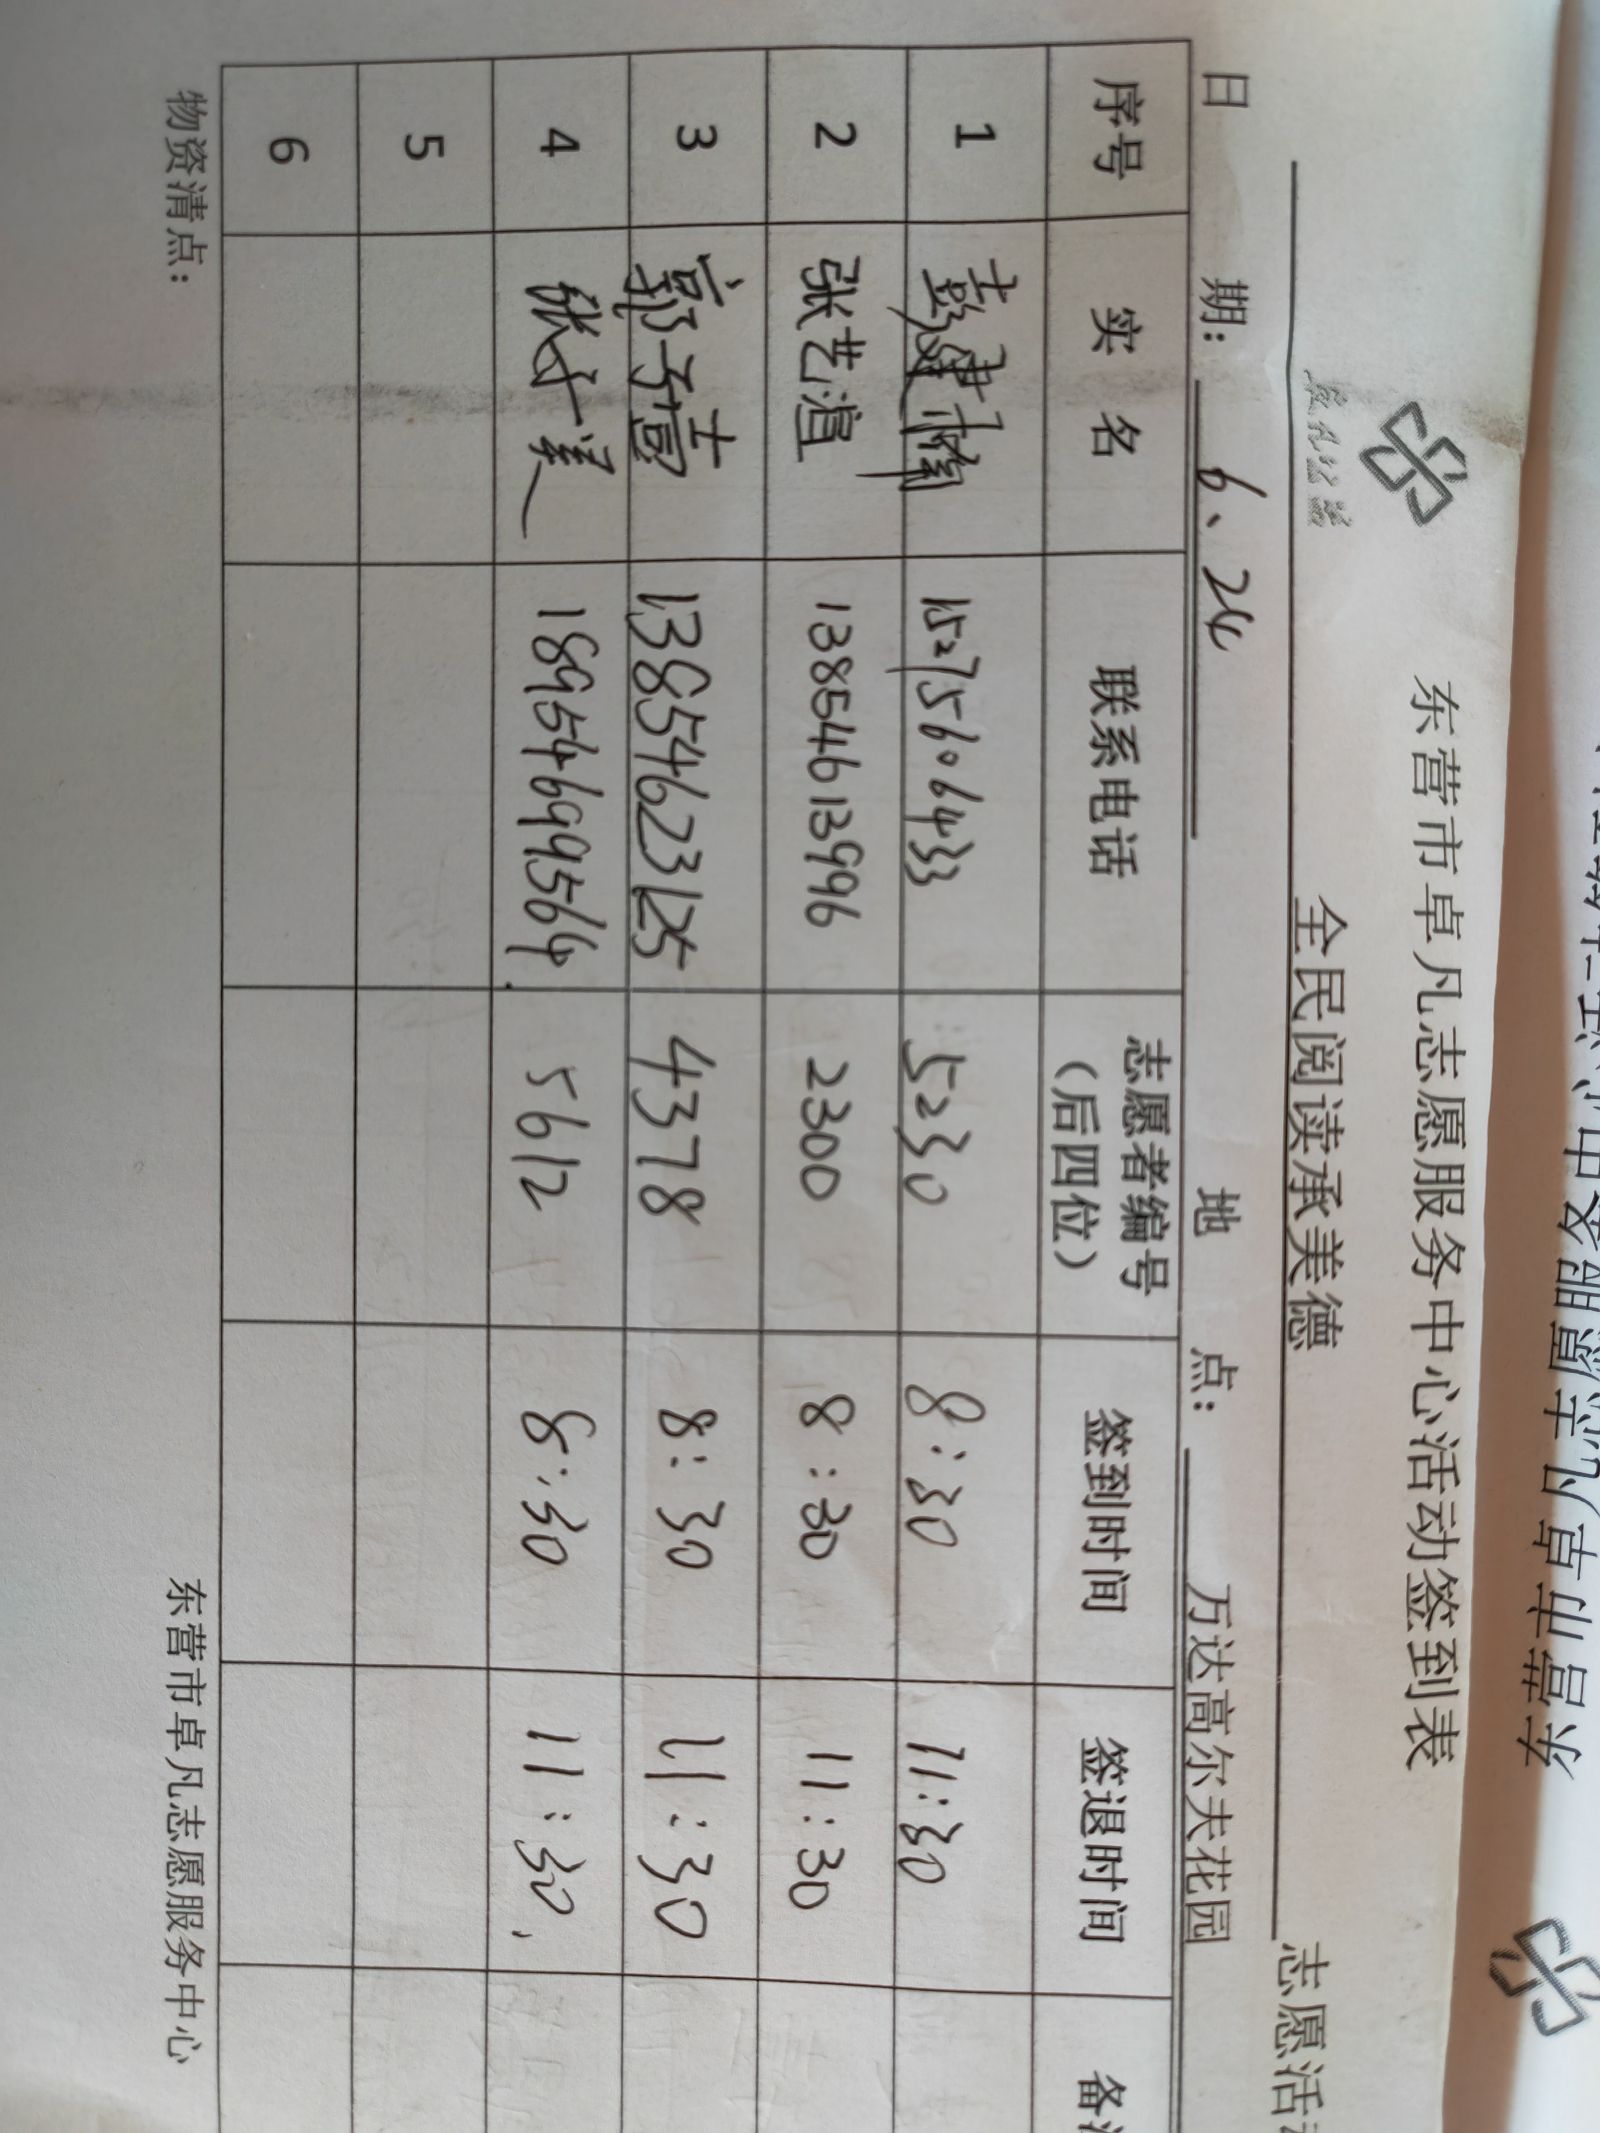 东营市卓凡志愿服务中心
东营市卓凡志愿服务中心活动签到表
全民阅读承美德 志愿活
日 期： 6、24 地 点： 万达高尔夫花园
序号 实 名 联系电话 志愿者编号（后四位） 签到时间 签退时间 备
1 15275606433 5230 8:30 11:30
2 张艺渲 13854613996 2300 8:30 11:30
3 郭子萱 13854623125 4378 8:30 11:30
4 张一美 18954699564 5612 8:30 11:30
5
6
物资清点： 东营市卓凡志愿服务中心